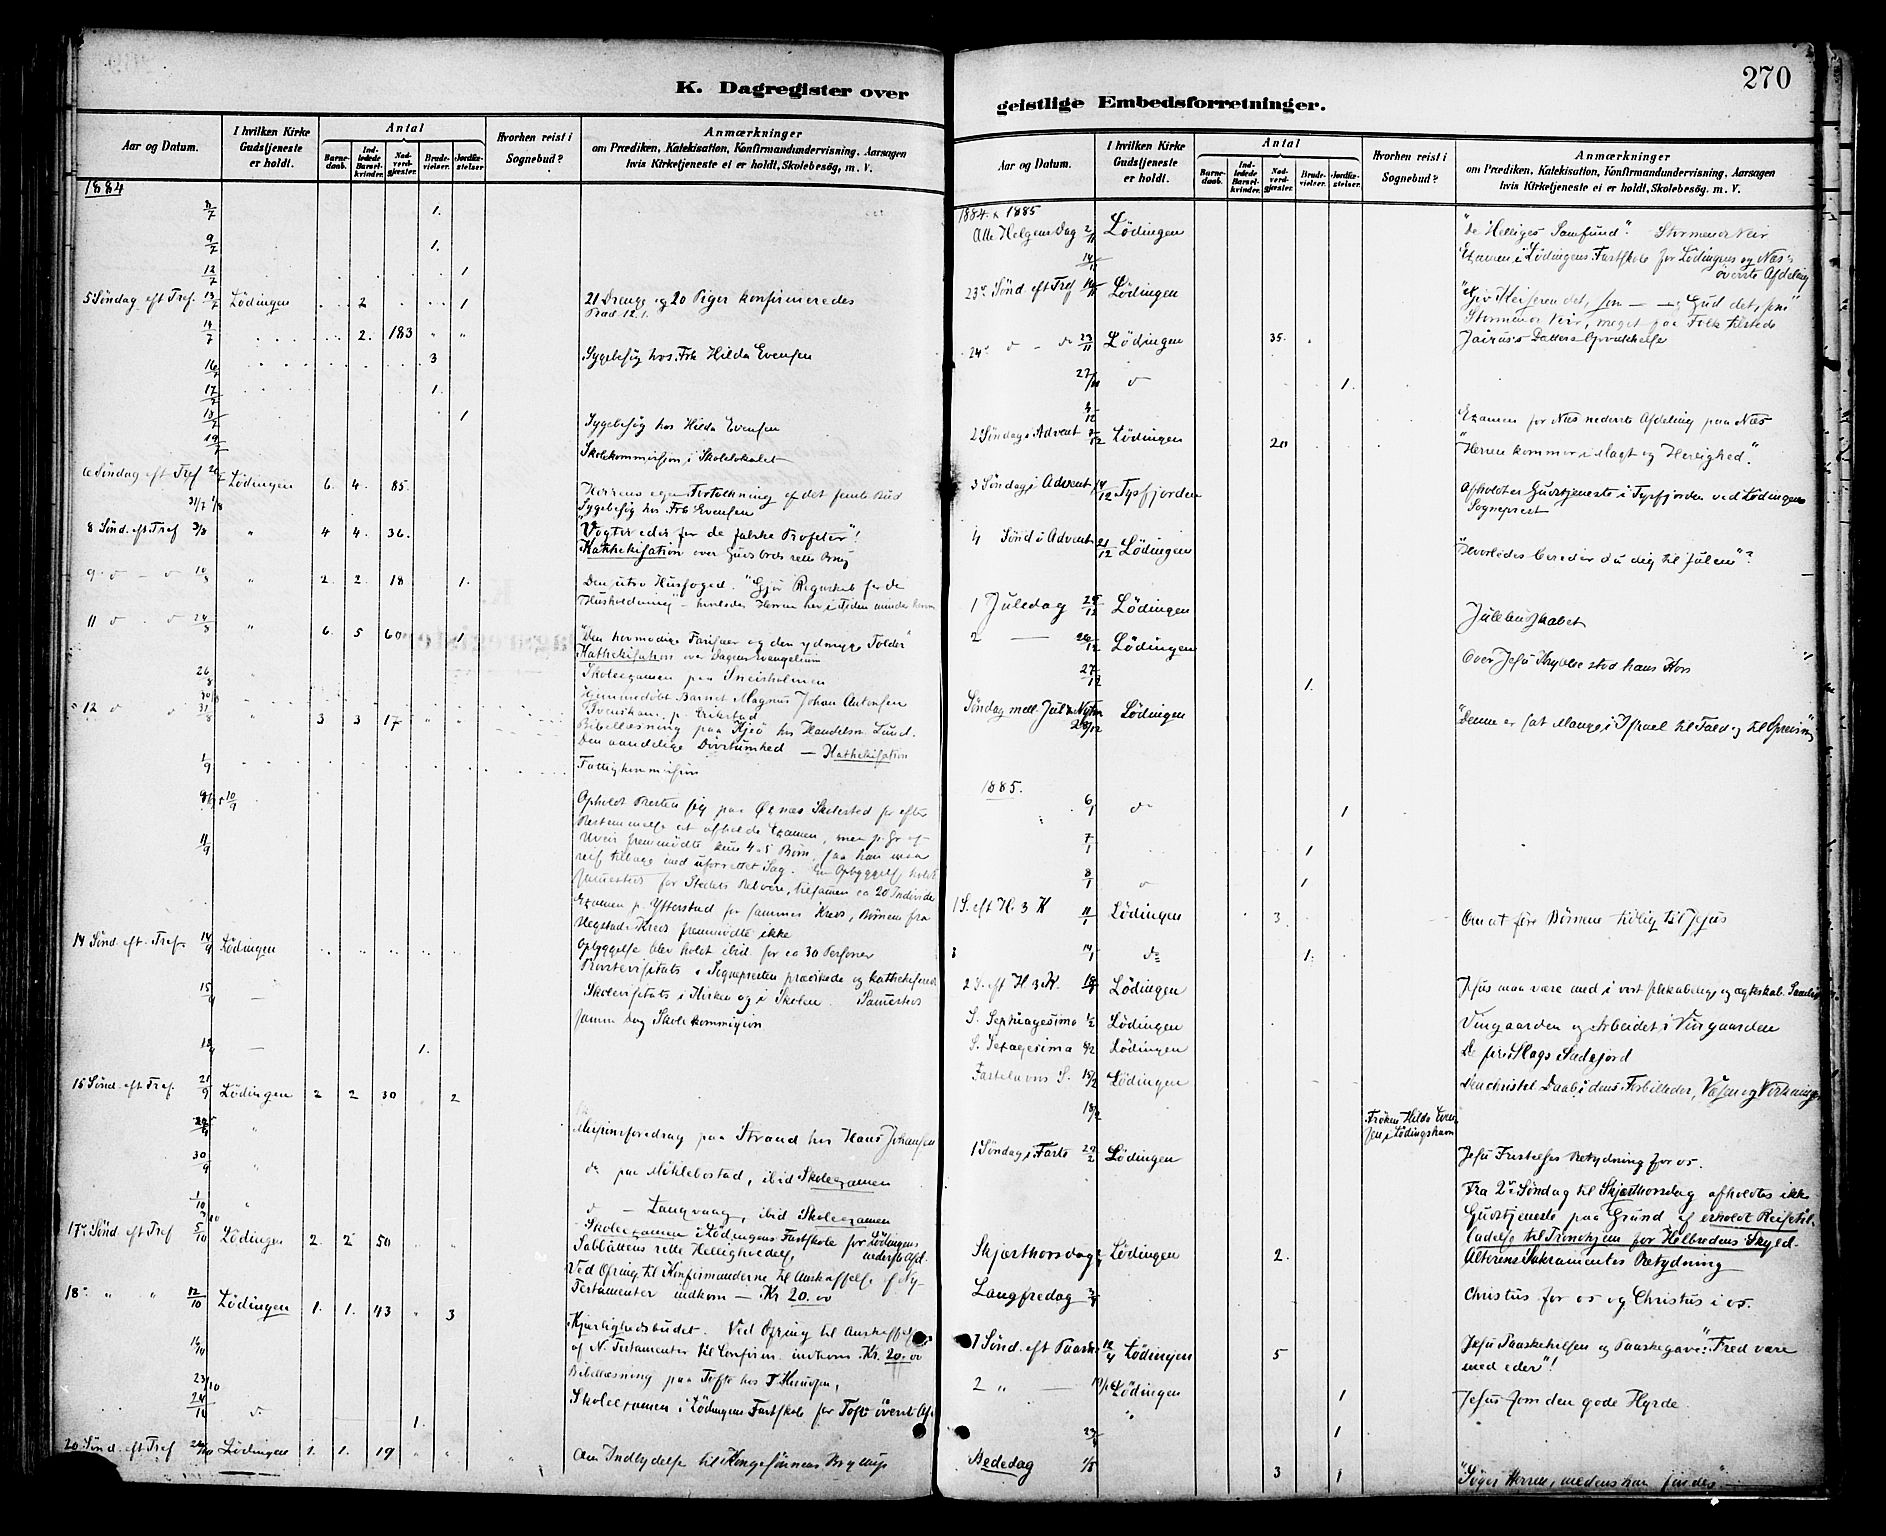 K. Dagregister over
Aar og Datum.
I hvilken Kirke Gudstjeneste er holdt.
Antal
Barnedaab.
Indledede Barselkvinder.
Nadverdgjæster.
Brudevielser.
Jordfæstelser.
Hvorhen reist i Sognebud?
Anmærkninger
om Prædiken, Katekisation, Konfirmandundervisning, Aarsagen
hvis Kirketjeneste ei er holdt, Skolebesög, m. V.
1884
8/7 1.
9/7 1.
12/7 1
5 Søndag eft Tref. 13/7 Lödingen 2 1 21 Drenge og 20 Piger konfirmeredes
14/7 2. 183 " "
16/7 3 Sygebesög hos Frk Hilda Evensen
17/7 1.
18/7 1 Sygebesög hos Hilda Evensen
19/7 Skolekommission i Skolelokalet
6 Søndag eft Tref 20/7 Lödingen 6. 4. 85. Herrens egen Fortolkning af det femte Bud
31/7 1/8 Sygebesög hos Frk Evensen
8 Sönd. eft Tref 3/8 " 4 4. 36. "Vogter eder for de falske Profeter"!
Kathekisation over Guds Ords rette Brug
9 d – d 10/8 " 2. 2. 18 1. Den utro Husfoged. "Gjør Regnskab for din
Husholdning"
11 d d 24/8 " 6. 5 60 1. "Den hovmodige Farisæer og den ydmyge Tolder"
Kathekisation over Dagens Evangelium
26/8 Skoleexamen paa Sneisholmen
30/8 Hjemmedøbt Barnet Magnus Johan Antonsen
12 d d 31/8 " 3 3 17 " "
Bibellæsning paa Kjeö hos Handelsm. Lund.
Den aandelige Døvstumhed — Kathekisation
1/9 Fattigkommission
9/9 10/9 Opholdt Presten sig paa Öxnes Skolested for efter
Bestemmelse at afholde Examen, men p. Gr. af
Uveir fremmödte kun 4 a 5 Börn, saa han maa
reise tilbage med uforrettet Sag. En Opbyggelse holdt
sammesteds for Stedets Beboere, tilsammen ca 20 Individer
11/9 Examen p. Ytterstad for sammes Kreds, Börnene fra
Hegstad Kreds fremmödte ikke
Opbyggelse blev holdt ibid. for ca 30 Personer
14 Sönd. eft. Tref. 14/9 Lödingen Provstevisitats. Sognepresten prædikede og katheketiserede
15/9 — Skolevisitats i Kirken og i Skolen. Sammesteds
samme Dag Skolekommission
18/9 — 1.
15 Sönd. eft Tref. 21/9 Lödingen 2 2 30 2
" Missionsforedrag paa Strand hos Hans Johansen
30/9 " do paa Möklebostad, ibid Skoleexamen
1/10 " d — Langvaag, ibid Skoleexamen
Skoleexamen i Lödingens Fastskole for Lödingens
nederste Afd.
17. Sönd eft Tref 5/10 Lödingen 2. 2 50 Sabbattens rette Helligholdelse,
Ved Ofring til Konfirmanderne til Anskaffelse af Ny
Testamenter indkom — Kr 20.00
18 " " 12/10 Lödingen 1. 1. 43 " 3 Kjærlighedsbudet. Ved Ofring til Anskaffelse
af N. Testamenter til Confirm. indkom Kr. 20.00
Bibellæsning paa Tofte hos T. Knudsen,
23/10
24/10 d. 1. Skoleexamen i Lödingens Fastskole for Tofte överste Af.
20 Sönd. eft Tref 26/10 Lödingen 1. 1. 19 " " Om Indbydelse til Kongesönnens Bryllup
270
geistlige Embedsforretninger.
Aar og Datum.
I hvilken Kirke Gudstjeneste er holdt.
Antal
Barnedaab.
Indledede Barselkvinder.
Nadverdgjæster.
Brudevielser.
Jordfæstelser.
Hvorhen reist i Sognebud?
Anmærkninger
om Prædiken, Katekisation, Konfirmandundervisning, Aarsagen
hvis Kirketjeneste ei er holdt, Skolebesög, m. V.
1884 & 1885
Alle Helgens Dag 2/11 Lödingen "De Helliges Samfund". Stormende Veir
14/11 Examen i Lödingens Fastskole for Lödingens og Næs's
överste Afdeling
23de Sönd. eft Tref 16/11 Lödingen "Giv Keiseren det, som — og Gud det, som"
Stormende Veir, meget faa Folk tilstede
24de d – do 23/11 Lödingen 35. Jairus's Datters Opvækkelse
27/11 d 1.
Examen for Næs nederste Afdeling paa Næs
2 Söndag i Advent 7/12 Lödingen 20 "Herren kommer i Magt og Herlighed".
3 Söndag i Advent 14/12 Tysfjorden Afholdtes Gudstjeneste i Tysfjorden ved Lödingens
Sogneprest
4 Sönd i Advent 21/12 Lödingen "Hvorledes bereder du dig til Julen"?
1 Juledag 25/12 Lödingen Julebudskabet
2 — 26/12 Lödingen Over Jesu Krybbe stod hans Kors
27/12 1.
Söndag mell. Jul & Nytår 28/12 Lödingen "Denne er sat Mange i Israel til Fald og til Opreisn"
1885.
6/1 do 1
7/1 1
8/1 d 1
1 S. eft H. 3 K 11/1 Lödingen 3. Om at före Börnene tidlig til Jesus
14/1 do 1.
2 S. eft H. 3 K. 18/1 Lödingen Jesus maa være med i vort selskabelige og ægteskab. Samliv
S. Septuagesima 1/2 Lödingen Viingaarden og Arbeidet i Viingaarden
S. Sexagesima 8/2 Lödingen De fire Slags Sædejord
Fastelavns S. 15/2 Lödingen Den christel. Daab i dens Forbilleder, Væsen og Virkninger
18/2 Fröken Hilda Evensen, i Lödingshavn
1 Söndag i Faste 22/2 Lödingen Jesu Fristelses Betydning for os.
Fra 2. Söndag til Skjærthorsdag afholdtes ikke
Gudstjeneste paa Grund af erholdt Reisetil-
ladelse til Trondhjem for Helbredens Skyld.
Skjærthorsdag Lödingen 2. Alterens Sakramentes Betydning
Langfredag Christus for os og Christus i os.
1 Sönd. eft Paaske 12/4 Lödingen 5 Jesu Paaskehilsen og Paaskegave: "Fred være
med eder"!
2 " — 19/4 Lödingen 1 Jesus som den gode Hyrde
" 1
Bededag 1/5 3 1 "Söger Herren, medens han findes"